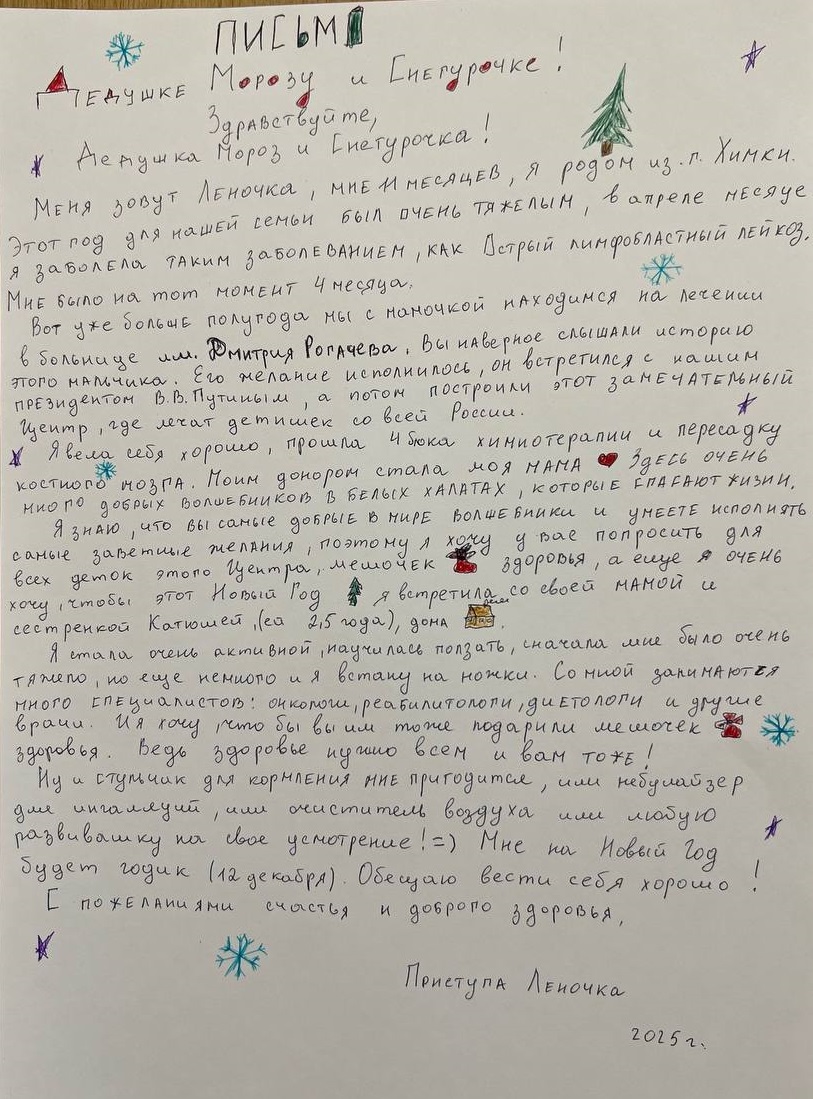 ПИСЬМО
Дедушке Морозу и Снегурочке!
Здравствуйте,
Дедушка Мороз и Снегурочка!
Меня зовут Леночка, мне 11 месяцев, я родом из г. Химки.
Этот год для нашей семьи был очень тяжелым, в апреле месяце
я заболела таким заболеванием, как Острый лимфобластный лейкоз.
Мне было на тот момент 4 месяца.
Вот уже больше полугода мы с мамочкой находимся на лечении
в больнице им. Дмитрия Рогачева. Вы наверное слышали историю
этого мальчика. Его желание исполнилось, он встретился с нашим
президентом В.В. Путиным, а потом построили этот замечательный
Центр, где лечат детишек со всей России.
Я вела себя хорошо, прошла 4 блока химиотерапии и пересадку
костного мозга. Моим донором стала моя мама Здесь очень
много добрых волшебников в белых халатах, которые спасают жизни.
Я знаю, что вы самые добрые в мире волшебники и умеете исполнять
самые заветные желания, поэтому я хочу у вас попросить для
всех деток этого Центра, мешочек здоровья, а еще я очень
хочу, чтобы этот Новый Год я встретила со своей мамой и
сестренкой Катюшей, (ей 2,5 года), дома.
Я стала очень активной, научилась ползать, сначала мне было очень
тяжело, но еще немного и я встану на ножки. Со мной занимаются
много специалистов: онкологи, реабилитологи, диетологи и другие
врачи. И я хочу, что бы вы им тоже подарили мешочек
здоровья. Ведь здоровье нужно всем и вам тоже!
Ну и стульчик для кормления мне пригодится, или небулайзер
для ингаляций, или очиститель воздуха или любую
развивашку на свое усмотрение! =) Мне на Новый Год
будет годик (12 декабря). Обещаю вести себя хорошо!
С пожеланиями счастья и доброго здоровья,
Приступа Леночка
2025 г.